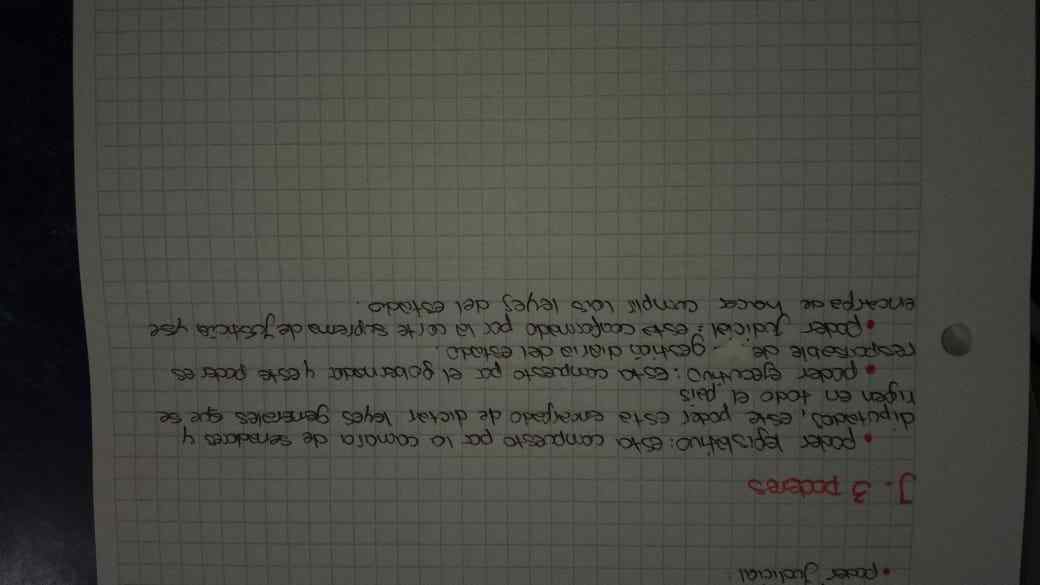 • poder judicial:
J. 3 poderes
• poder legislativo: esta compuesto por la camara de senadores y
diputados, este poder esta encargado de dictar leyes generales que se
rigen en todo el pais
• poder ejecutivo: esta compuesto por el gobernador y este poder es
responsable de gestión diaria del estado.
• poder judicial: esta conformado por la corte suprema de justicia y se
encarga de hacer cumplir las leyes del estado.